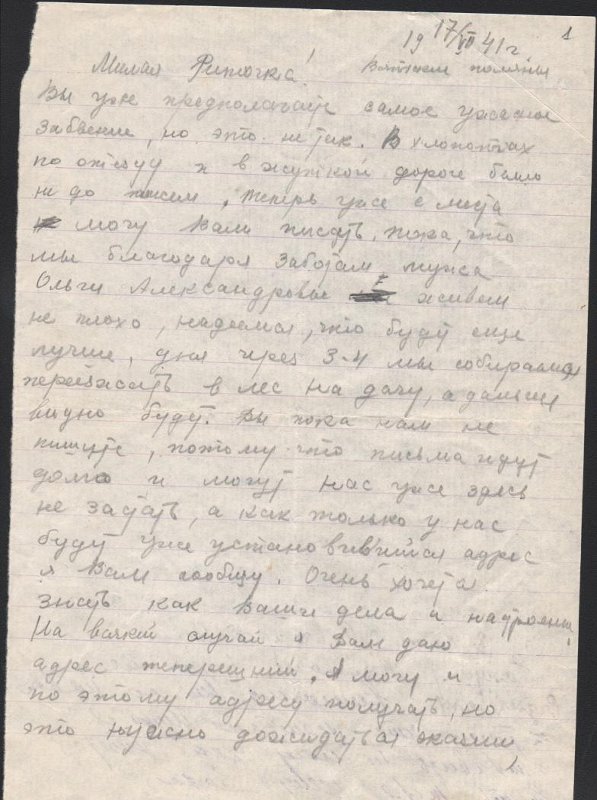 1
19 17/VII 41 г
Милая Риточка!
Вятские поляны
Вы уже предполагаете самое ужасное
забвение, но это не так. В хлопотах
по отъезду и в жуткой дороге было
не до писем, теперь уже с места
могу Вам писать, пока, что
мы благодаря заботам мужа
Ольги Александровны живем
не плохо, надеемся, что будет еще
лучше, дня через 3-4 мы собираемся
переезжать в лес на дачу, а дальше
видно будет. Вы пока нам не
пишите, потому что письма идут
долго и могут нас уже здесь
не застать, а как только у нас
будет уже установившийся адрес
я Вам сообщу. Очень хочется
знать как Ваши дела и настроение,
На всякий случай я Вам даю
адрес теперешний. Я могу и
по этому адресу получать, но
это нужно дожидаться оказии,